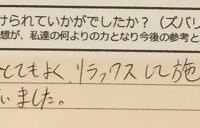 けられていかがでしたか？（ズバリ
想が、私達の何よりの力となり今後の参考と
とてもよく、リラックスして施
いました。